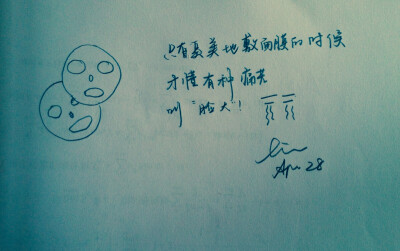 只有臭美地敷面膜的时候
才懂有种痛苦
叫“脸大”！
Apr 28